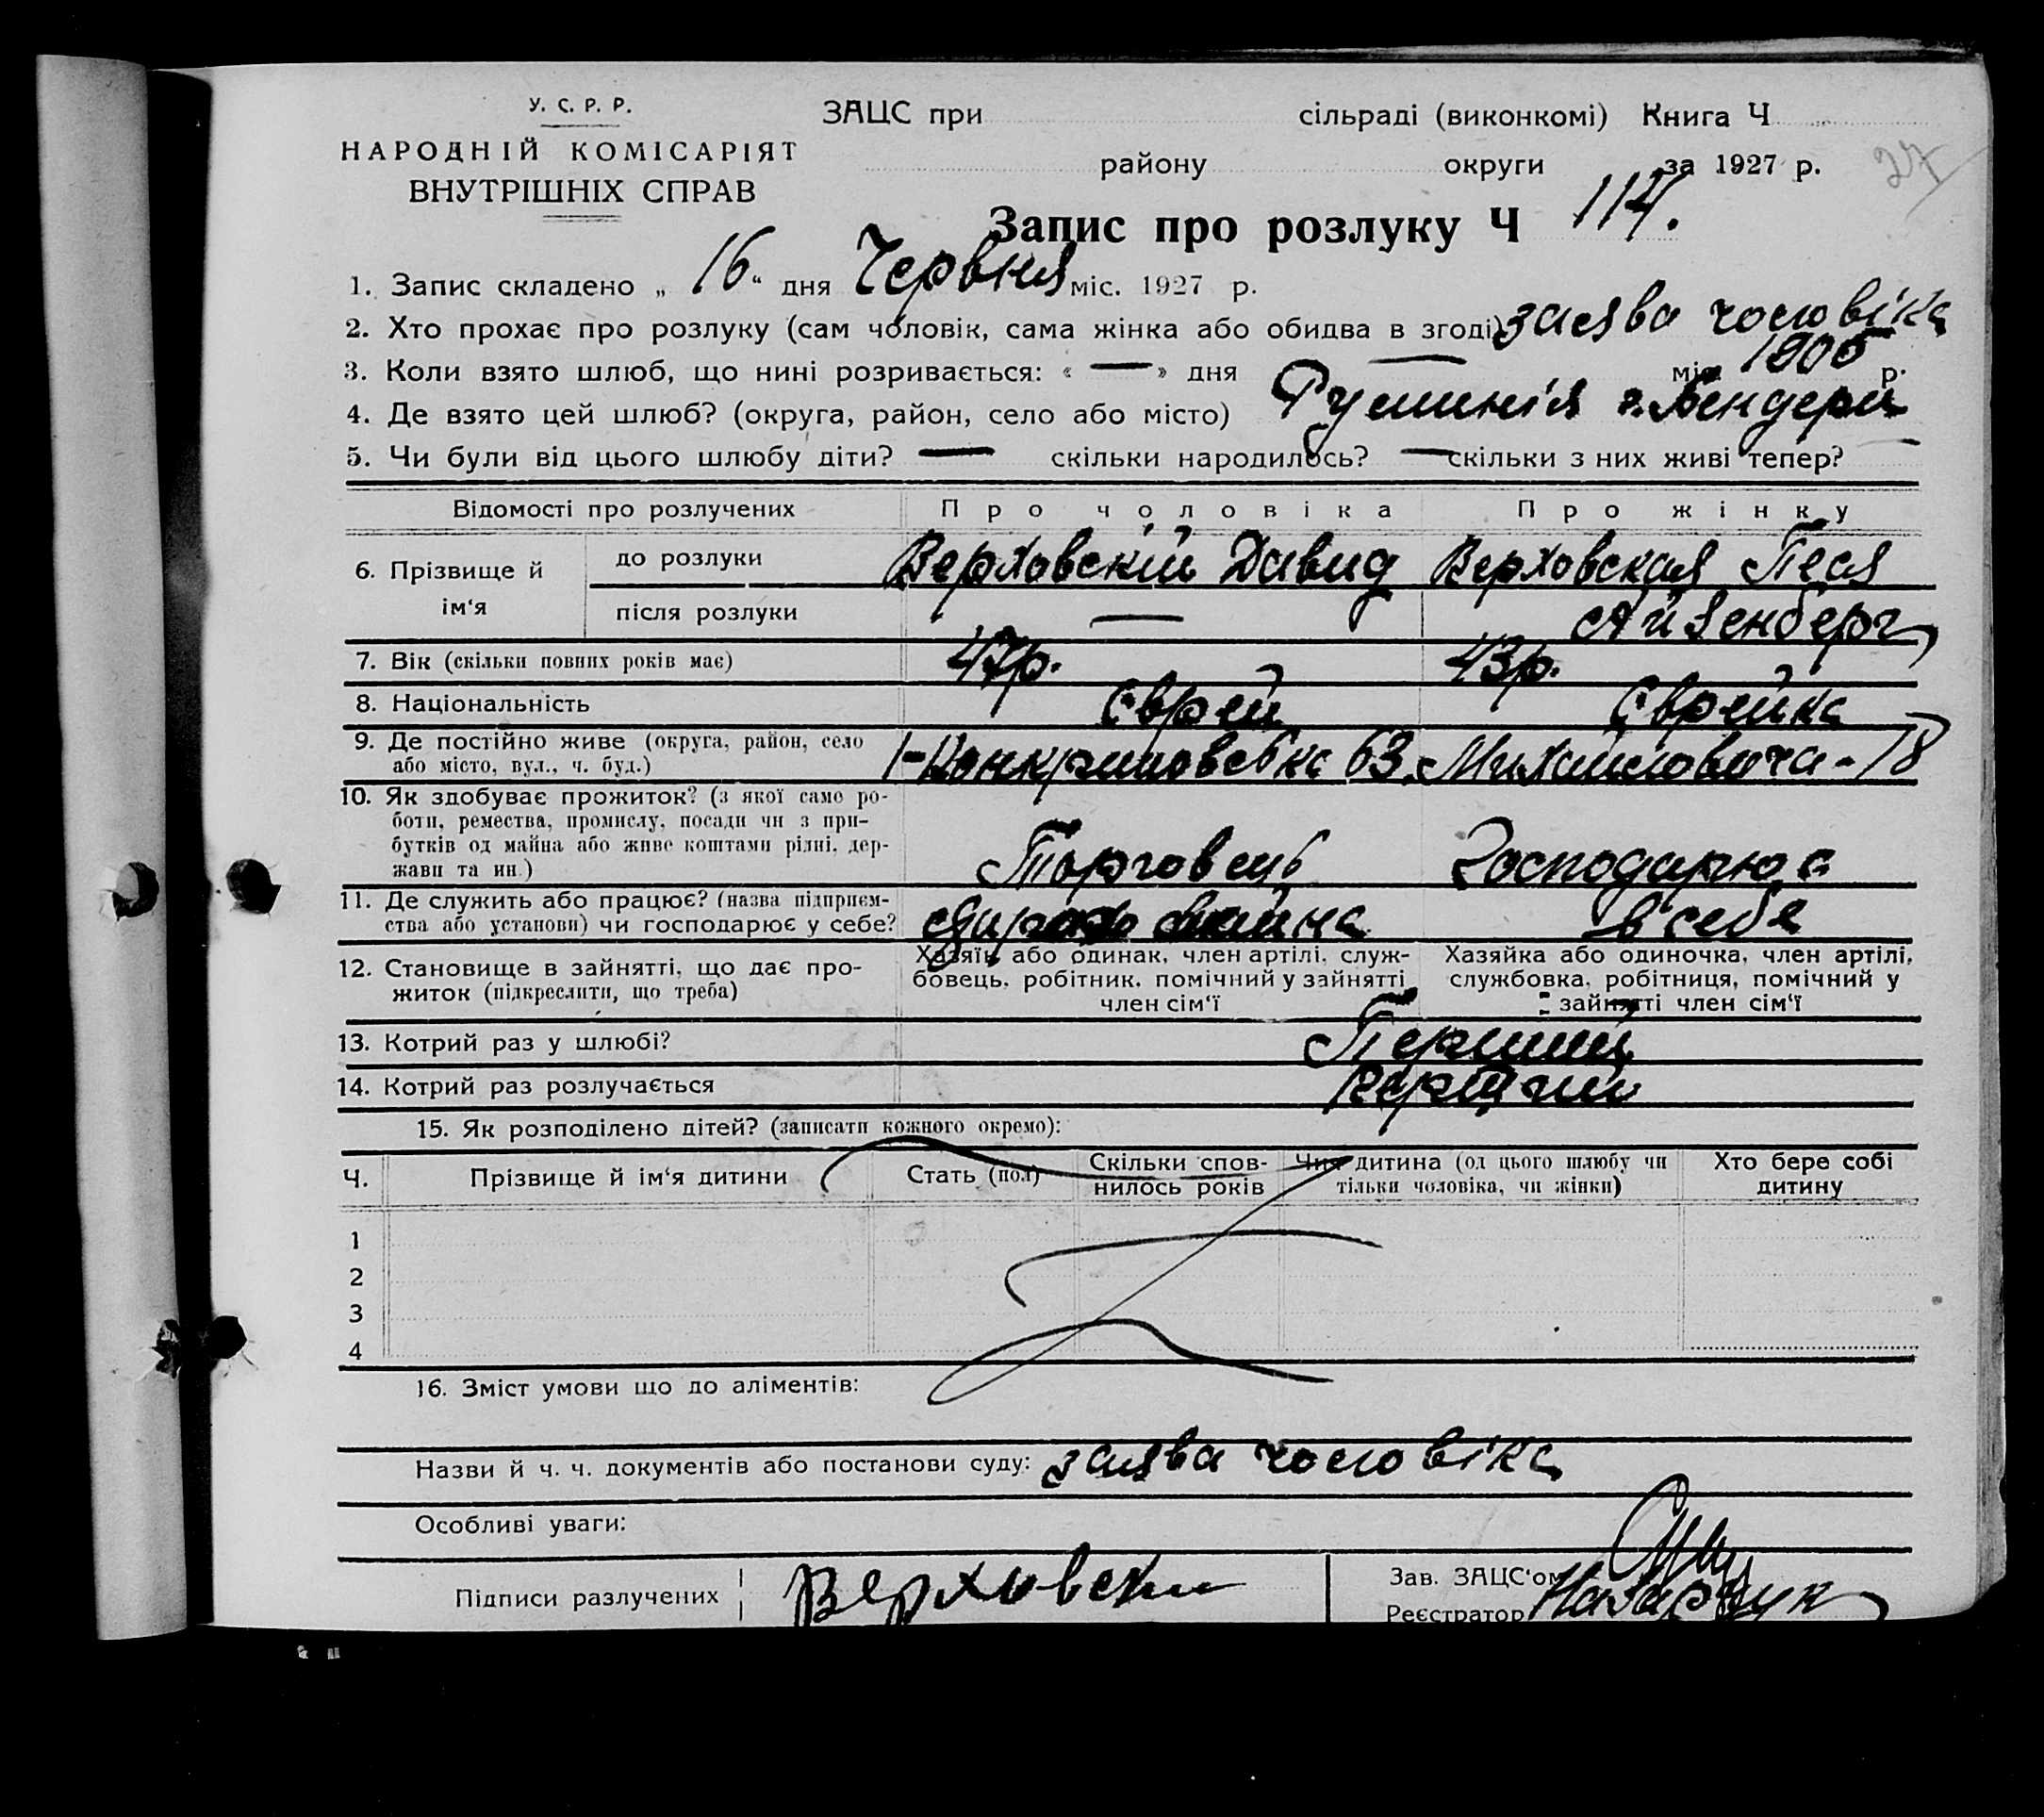 У. С. Р. Р.
НАРОДНІЙ КОМІСАРІЯТ
ВНУТРІШНІХ СПРАВ
ЗАЦС при сільраді (виконкомі) Книга Ч
району округи за 1927 р.
27
Запис про розлуку Ч 114.
1. Запис складено „ 16 “ дня Червня міс. 1927 р.
2. Хто прохає про розлуку (сам чоловік, сама жінка або обидва в згоді) заява чоловіка
3. Коли взято шлюб, що нині розривається: « — » дня — міс. 1905 р.
4. Де взято цей шлюб? (округа, район, село або місто) Руминія г. Бендери
5. Чи були від цього шлюбу діти? — скільки народилось? — скільки з них живі тепер? —
Відомості про розлучених Про чоловіка Про жінку
6. Прізвище й ім‘я до розлуки Верховский Давид Верховская Песя
після розлуки — Айзенберг
7. Вік (скільки повних років має) 47р. 43р.
8. Національність Єврей Єврейка
9. Де постійно живе (округа, район, село
або місто, вул., ч. буд.) 63. Михайловича - 18
10. Як здобуває прожиток? (з якої само ро-
боти, ремества, промислу, посади чи з при-
бутків од майна або живе коштами рідні, дер-
жави та ин.) Торговець Господарює
11. Де служить або працює? (назва підприєм-
ства або установи) чи господарює у себе? в себе
12. Становище в зайнятті, що дає про-
житок (підкреслити, що треба)
Хазяїн або одинак, член артілі, служ-
бовець, робітник, помічний у зайнятті
член сім‘ї
Хазяйка або одиночка, член артілі,
службовка, робітниця, помічний у
зайнятті член сім‘ї
13. Котрий раз у шлюбі? Перший
14. Котрий раз розлучається перший
15. Як розподілено дітей? (записати кожного окремо):
Ч. Прізвище й ім‘я дитини Стать (пол) Скільки спов-
нилось років Чия дитина (од цього шлюбу чи
тільки чоловіка, чи жінки) Хто бере собі
дитину
1
2
3
4
16. Зміст умови що до аліментів:
Назви й ч. ч. документів або постанови суду: заява чоловіка
Особливі уваги:
Підписи разлучених Верховски
Зав. ЗАЦС‘ом
Реєстратор Назарчук